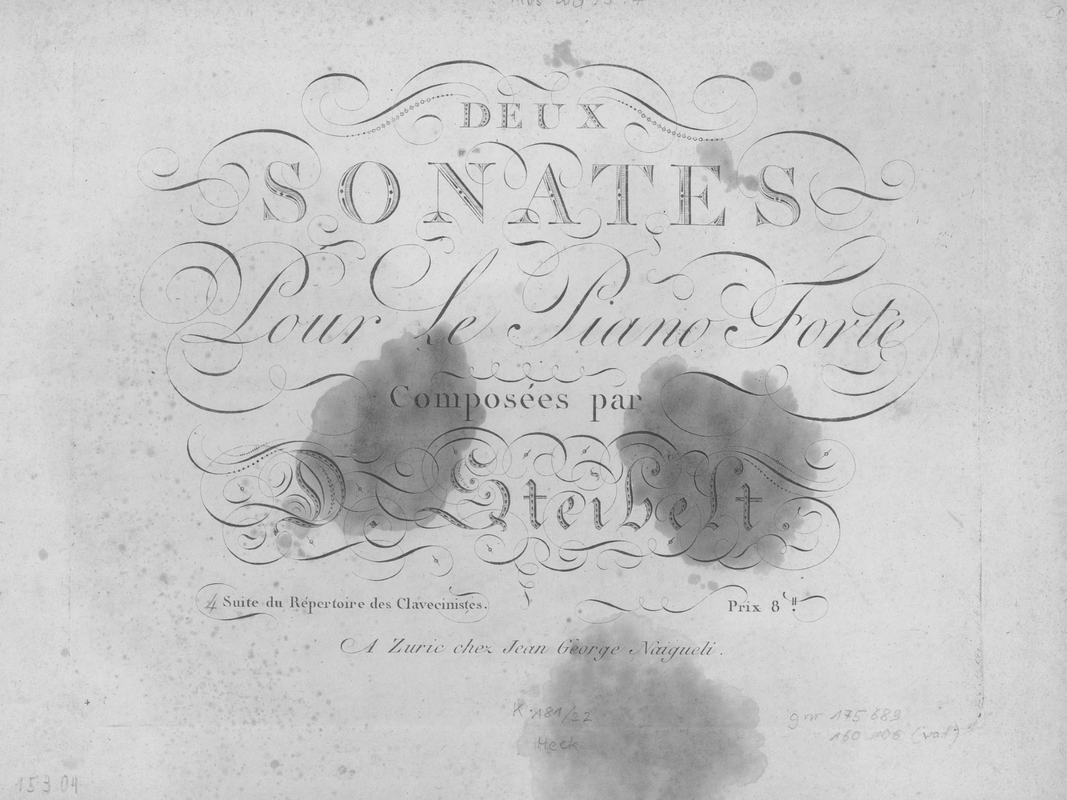 DEUX
SONATES
Pour le Piano Forte
Composées par
D. Steibelt.
4 Suite du Répertoire des Clavecinistes.
Prix 8 ₶.
A Zuric chez Jean George Naigueli.
K 181/22
Heck
gnr 175 689
160 106 (vat)
15 3 04